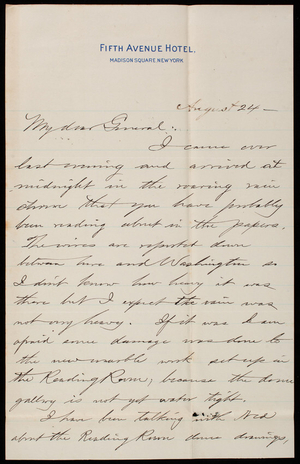 FIFTH AVENUE HOTEL.
MADISON SQUARE NEW YORK
August 24 —
My dear General:
I came over
last evening and arrived at
midnight in the roaring rain
storm that you have probably
been reading about in the papers.
The wires are reported down
between here and Washington so
I don't know how heavy it was
there but I expect the rain was
not very heavy. If it was I am
afraid some damage was done to
the new marble work set up in
the Reading Room, because the dome
gallery is not yet water tight.
I have been talking with Ned
about the Reading Room dome drawings,